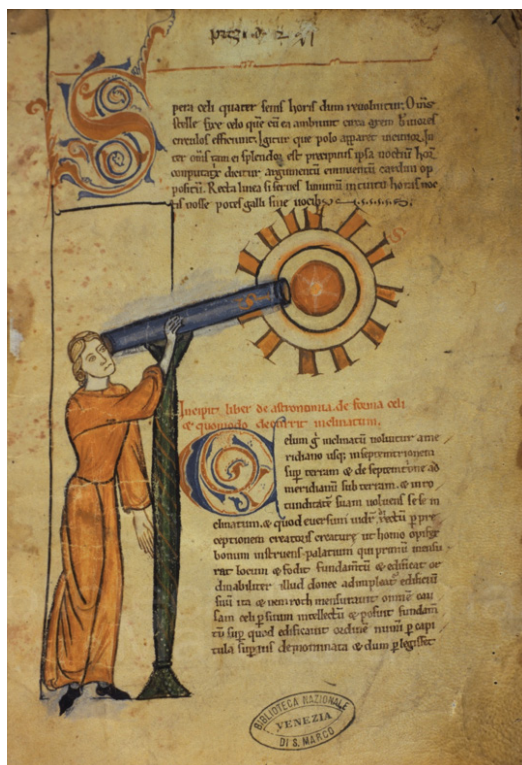 Spera celi quater senis horis dum reuoluitur. O
stelle fixe celo que cū ea ambiunt circa axem breuiores
circulos efficiunt. Igitur que polo apparet uicinior. lu
cet tam ei splendor est precipuus ipsa noctiū hor
computare dicitur argumentū eminentiū cardini op
positū. Recta linea si serues luminū intuitu horas noc
tis nosse potes galli sine uocib
Incipit liber de astronomia. de forma celi
& quomodo decurrit inclinatum.
Celum inclinatū uoluitur a me
ridiano usq; in septemtrionem
sup terram & de septemtrione ad
meridianū sub terram. & in ro
tunditate suam uoluens se in
clinatum. & quod euersum rectū p pre
ceptionem creatoris creature ut homo
bonum instruens palatium qui primū mensu
rat locum & fodit fundamtū & edificat or
dinabiliter illud donec adimpleat edificiū
suū ita & nemroth mensurauit omnem cau
sam celi p suum intellectū & posuit fundam
tū sup quod edificauit ordinē p capi
tula & dum plegisset
BIBLIOTECA NAZIONALE
VENEZIA
DI S. MARCO